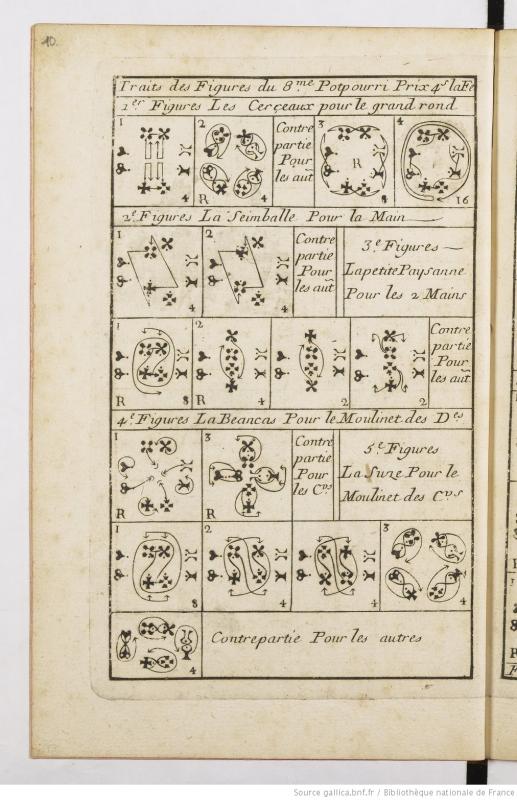 10.
Traits des Figures du 8.me Potpourri Prix 4s la Fe
1er Figures Les Cerçeaux pour le grand rond
1
2
3
4
Contre
partie
Pour
les aut
R
R
4
4
8
16
2e. Figures La Seimballe Pour la Main
1
2
Contre
partie
Pour
les aut
4
4
3.e Figures
La petite Paysanne
Pour les 2 Mains
1
2
R
8
R
4
2
2
Contre
partie
Pour
les aut
4e. Figures La Beancas Pour le Moulinet des Des
1
3
R
R
Contre
partie
Pour
les Cvs
5.e Figures
La Suze Pour le
Moulinet des Cvs
1
2
3
8
4
4
4
4
Contrepartie Pour les autres
Source gallica.bnf.fr / Bibliothèque nationale de France